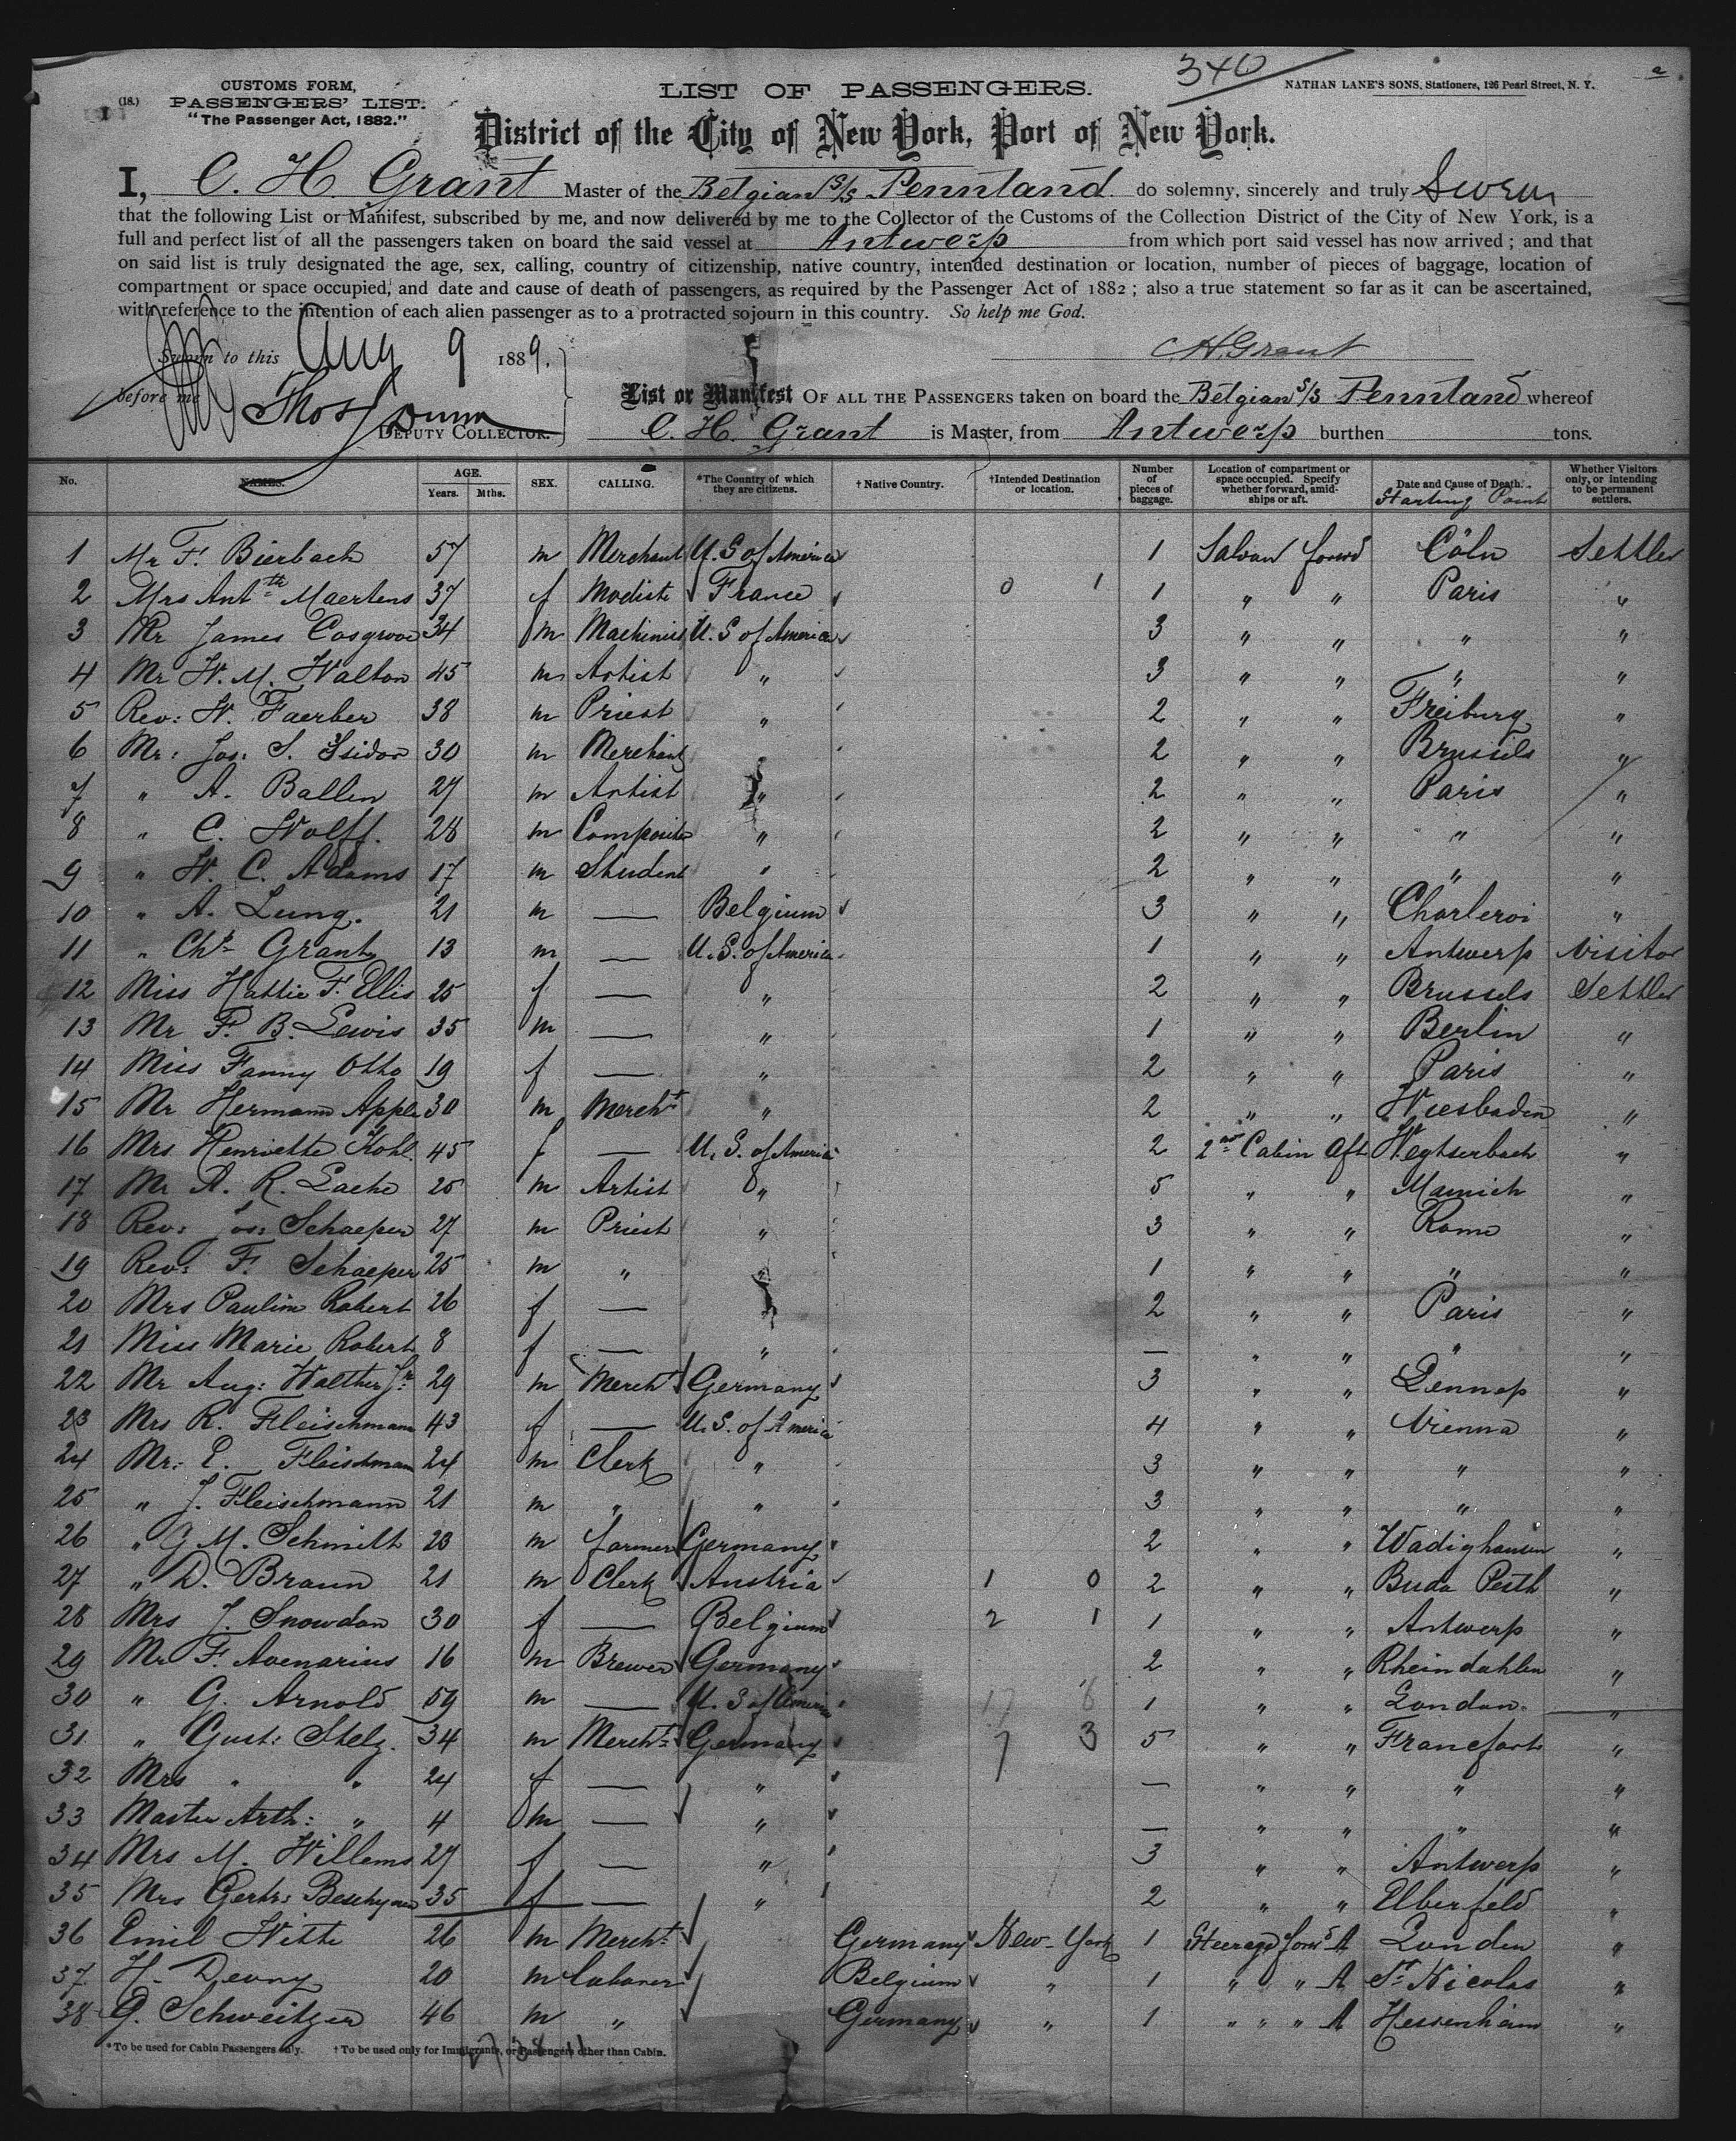 340
(18.)
CUSTOMS FORM,
PASSENGERS' LIST.
"The Passenger Act, 1882."
LIST OF PASSENGERS.
NATHAN LANE'S SONS, Stationers, 126 Pearl Street, N. Y.
District of the City of New York, Port of New York.
I, C. H. Grant Master of the Belgian S/S Pennland do solemny, sincerely and truly Swear
that the following List or Manifest, subscribed by me, and now delivered by me to the Collector of the Customs of the Collection District of the City of New York, is a
full and perfect list of all the passengers taken on board the said vessel at Antwerp from which port said vessel has now arrived; and that
on said list is truly designated the age, sex, calling, country of citizenship, native country, intended destination or location, number of pieces of baggage, location of
compartment or space occupied, and date and cause of death of passengers, as required by the Passenger Act of 1882; also a true statement so far as it can be ascertained,
with reference to the intention of each alien passenger as to a protracted sojourn in this country. So help me God.
Sworn to this Aug 9 1889.
C H Grant
before me Thos Dunn
DEPUTY COLLECTOR.
List or Manifest OF ALL THE PASSENGERS taken on board the Belgian S/S Pennland whereof
C. H. Grant is Master, from Antwerp burthen tons.
No. NAMES. AGE. Years. Mths. SEX. CALLING. *The Country of which they are citizens. †Native Country. †Intended Destination or location. Number of pieces of baggage. Location of compartment or space occupied. Specify whether forward, amidships or aft. Date and Cause of Death. Starting Point Whether Visitors only, or intending to be permanent settlers.
1 Mr F. Bierbach 57 m Merchant U. S of America 1 Saloon forwd Cöln Settler
2 Mrs Antth Maertens 37 f Modiste France 0 1 1 " " Paris "
3 Mr James Cosgrove 34 m Machinist U. S of America 3 " " " "
4 Mr W. M. Walton 45 m Artist " 3 " " " "
5 Rev: W. Faerber 38 m Priest " 2 " " Freiburg "
6 Mr: Jos: S. Isidor 30 m Merchant " 2 " " Brussels "
7 " A. Ballin 27 m Artist " 2 " " Paris "
8 " C. Wolff. 28 m Compositor " 2 " " " "
9 " W. C. Adams 17 m Student " 2 " " " "
10 " A. Lung. 21 m — Belgium 3 " " Charleroi "
11 " Chs Grant 13 m — U. S. of America 1 " " Antwerp Visitor
12 Miss Hattie F. Ellis 25 f — " 2 " " Brussels Settler
13 Mr F. B. Lewis 35 m — " 1 " " Berlin "
14 Miss Fanny Otto 19 f — " 2 " " Paris "
15 Mr Hermann Apple 30 m Mercht " 2 " " Wiesbaden "
16 Mrs Henriette Kohl 45 f — U. S. of America 2 2nd Cabin Aft "
17 Mr A. R. 25 m Artist " 5 " " Munich "
18 Rev: Jos: Schaeper 27 m Priest " 3 " " Rome "
19 Rev: F. Schaeper 25 m " " 1 " " " "
20 Mrs Pauline Robert 26 f — 2 " " Paris "
21 Miss Marie Robert 8 f — " — " " " "
22 Mr Aug: Walther Jr 29 m Mercht Germany 3 " " Lennep "
23 Mrs R. Fleischmann 43 f — U. S. of America 4 " " Vienna "
24 Mr: E. Fleischman 24 m Clerk " 3 " " " "
25 " J. Fleischmann 21 m " " 3 " " " "
26 " G M. Schmitt 23 m farmer Germany 2 " " "
27 " D. Braun 21 m Clerk Austria 1 0 2 " " Buda Pesth "
28 Mrs J. Snowdon 30 f — Belgium 2 1 1 " " Antwerp "
29 Mr F. Avenarius 16 m Brewer Germany 2 " " Rheindahlen "
30 " G. Arnold 59 m — U. S of America 17 8 1 " " London. "
31 " Gust: Stelz. 34 m Mercht: Germany 7 3 5 " " Francfort "
32 Mrs " " 24 f — " — " " " "
33 Master Arth: " 4 m — " — " " " "
34 Mrs M. Willems 27 f — " 3 " " Antwerp "
35 Mrs Gertr: 35 f — " 2 " " Elberfeld "
36 Emil Witte 26 m Mercht: Germany New-York 1 Steerage forwd A London "
37 H. Deony 20 m Laborer Belgium " 1 " " " A St Nicolas "
38 G. Schweitzer 46 m " Germany " 1 " " " A Hessenheim "
*To be used for Cabin Passengers only. †To be used only for Immigrants, or Passengers other than Cabin.
27 38 11